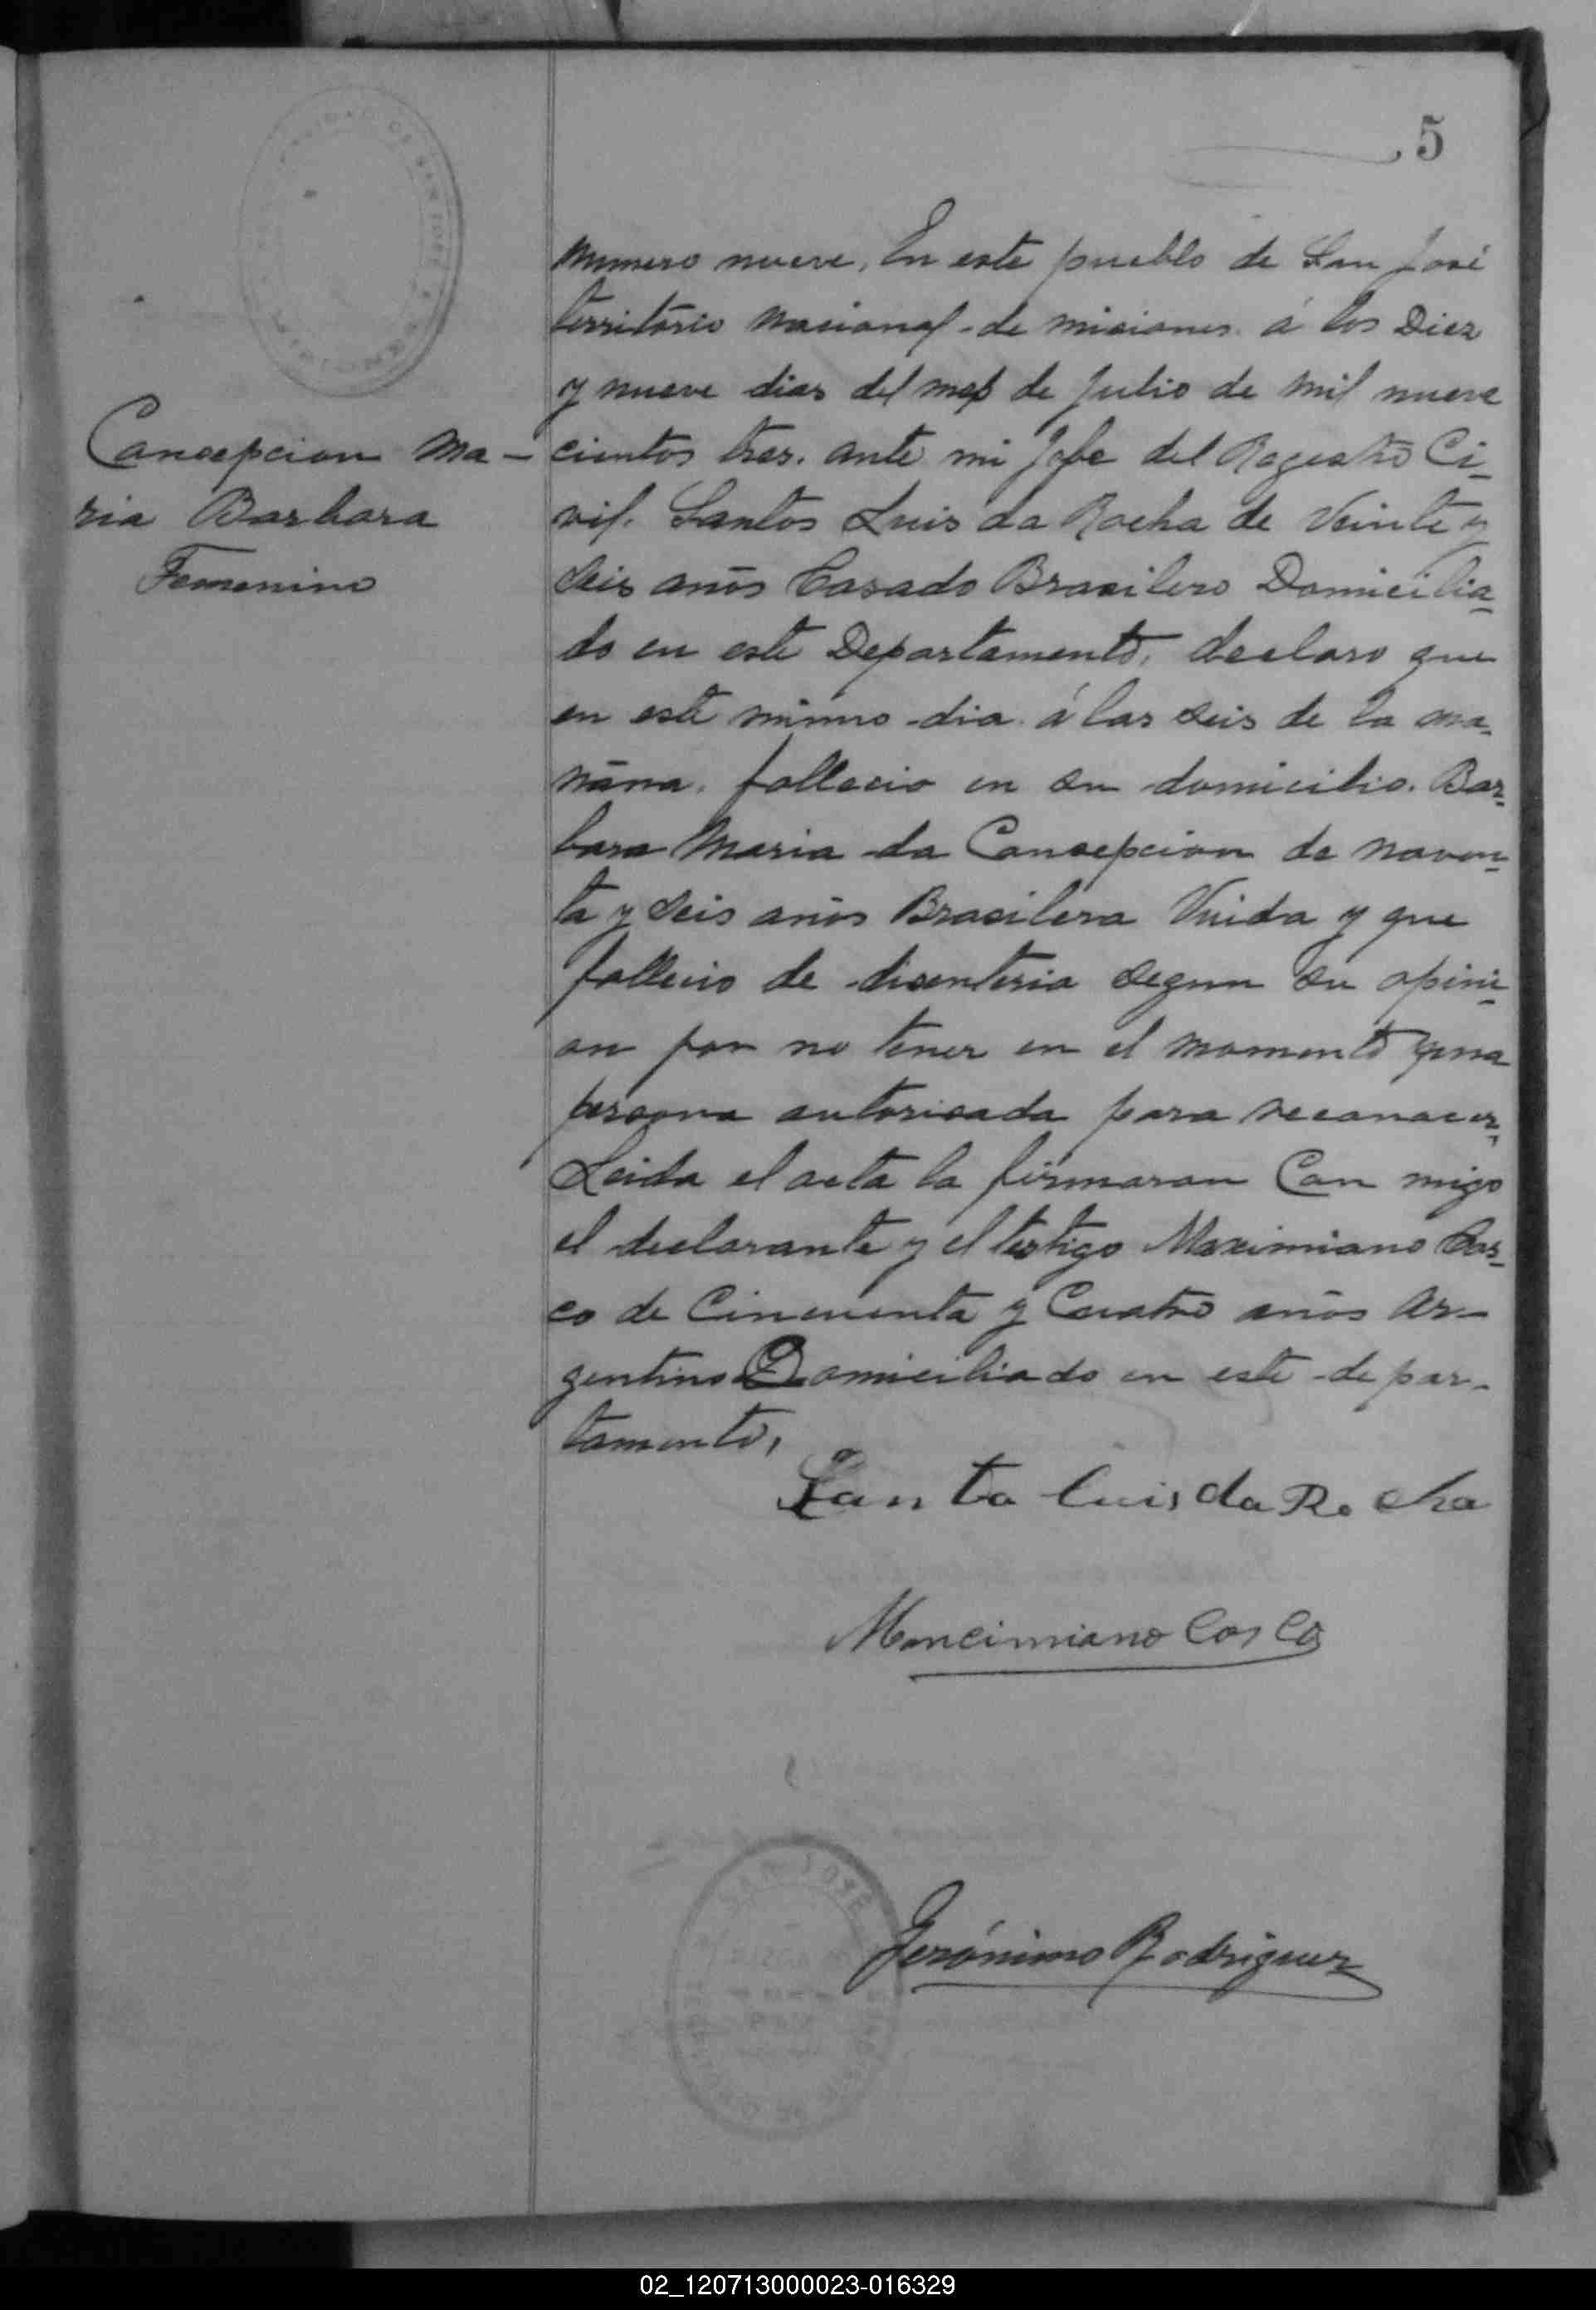 5
Numero nueve, En este pueblo de San José
território Nacional de misiones á los Diez
y nueve dias del mes de Julio de mil nueve
cientos tres. ante mi Jefe del Regestro Ci-
vil. Santos Luis da Rocha de Veinte y
Seis años Casado Brasilero Domicilia-
do en este Departamento, declaro que
en este mismo dia á las seis de la ma-
ñana, fallecio en su domicilio. Bar-
bara Maria da Concepcion de noven-
ta y seis años Brasilera Viuda y que
fallecio de disenteria segun su opini-
on por no tener en el momento una
persona autorisada para reconocer,
Leida el acta la firmaron Con migo
el declarante y el testigo Maximiano Cas-
co de Cincuenta y Cuatro años Ar-
gentino Domiciliado en este depar-
tamento,
Concepcion Ma-
ria Barbara
Femenino
Santo Luis da Rocha
Mancimiano Casco
Jerónimo Rodriguez
SAN JOSÉ
02_120713000023-016329